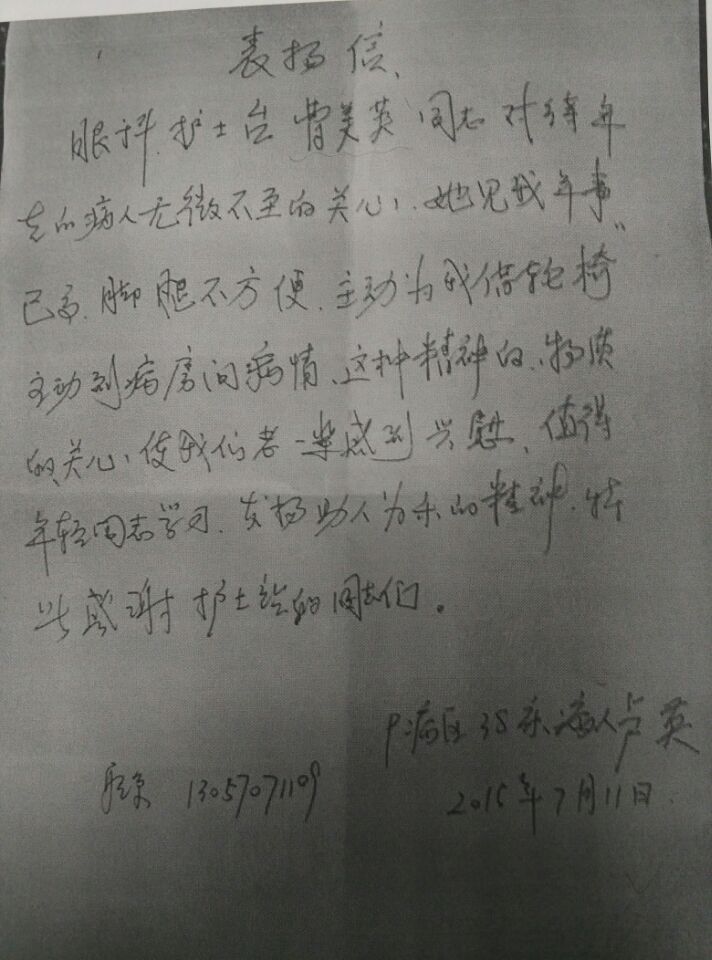 表扬信、
眼科护士台 美英同志对待年
老的病人无微不至的关心、她见我年事
已高、脚腿不方便、主动为我借轮椅
主动到病房问病情、这种精神的、物质
的关心、使我们老一辈感到 慰、值得
年轻同志学习、发扬助人为乐的精神、特
此感谢护士 的同志们。
病区38床病人卢英
13057071109
2015年7月11日.